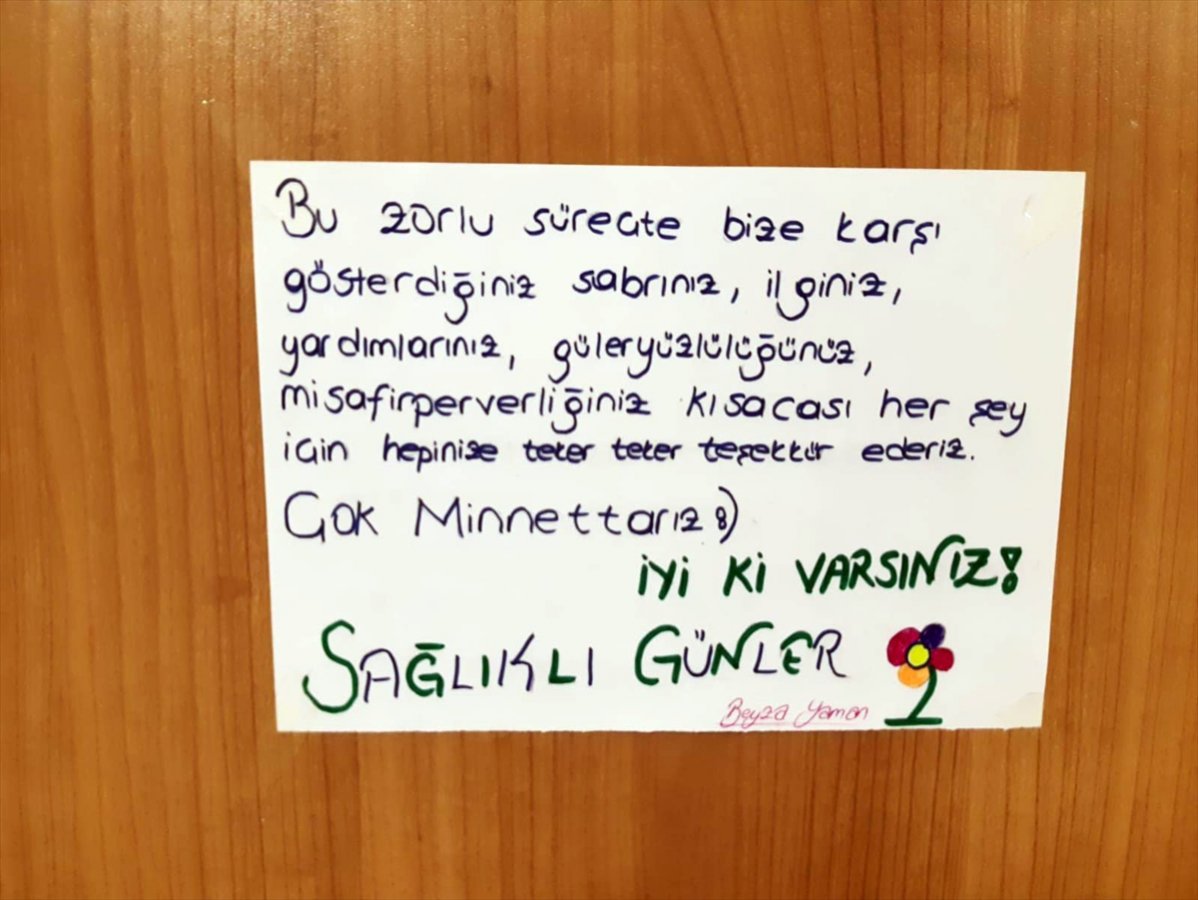 Bu zorlu süreçte bize karşı
gösterdiğiniz sabrınız, ilginiz,
yardımlarınız, güleryüzlülüğünüz,
misafirperverliğiniz kısacası her şey
için hepinize teker teker teşekkür ederiz.
Çok Minnettarız :)
İYİ Kİ VARSINIZ!
SAĞLIKLI GÜNLER
Beyza Yaman